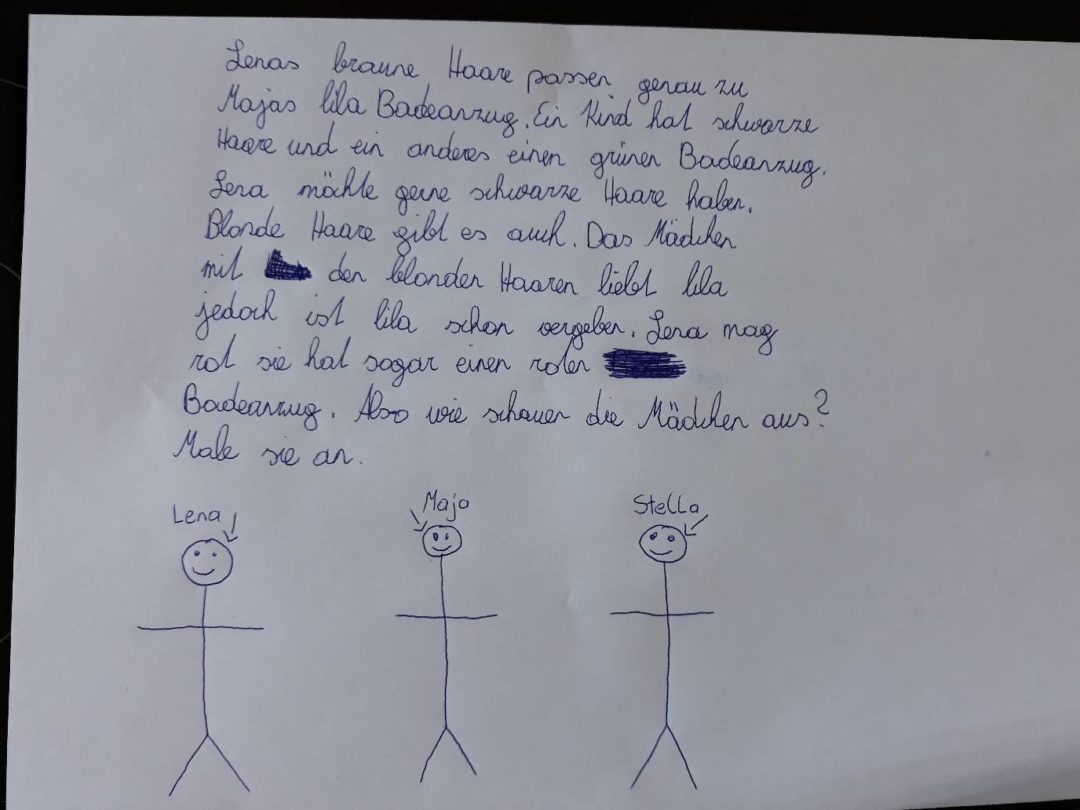 Lenas braune Haare passen genau zu
Majas lila Badeanzug. Ein Kind hat schwarze
Haare und ein anderes einen grünen Badeanzug.
Lena möchte gerne schwarze Haare haben.
Blonde Haare gibt es auch. Das Mädchen
mit den blonden Haaren liebt lila
jedoch ist lila schon vergeben. Lena mag
rot sie hat sogar einen roten
Badeanzug. Also wie schauen die Mädchen aus?
Male sie an.
Lena Maja Stella